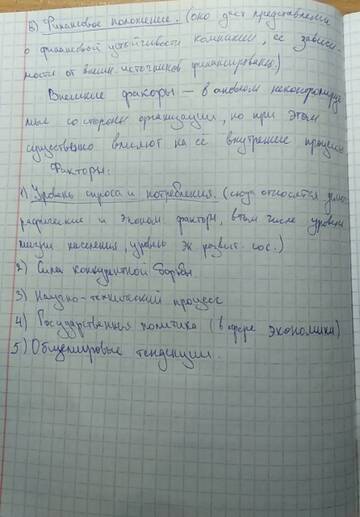 в) Финансовое положение. (оно дает представление
о финансовой устойчивости компании, её зависи-
мости от внешн. источников финансирования.)
Внешние факторы – в основном неконтролируе
мые со стороны организации, но при этом
существенно влияют на её внутренние процессы
Факторы:
1) Уровень спроса и потребления. (сюда относятся демог
рафические и эконом. факторы, в том числе уровень
жизни населения, уровень эк развит. гос.)
2) Сила конкурентной борьбы
3) Научно-технический прогресс
4) Государственная политика (в сфере экономики)
5) Общемировые тенденции.